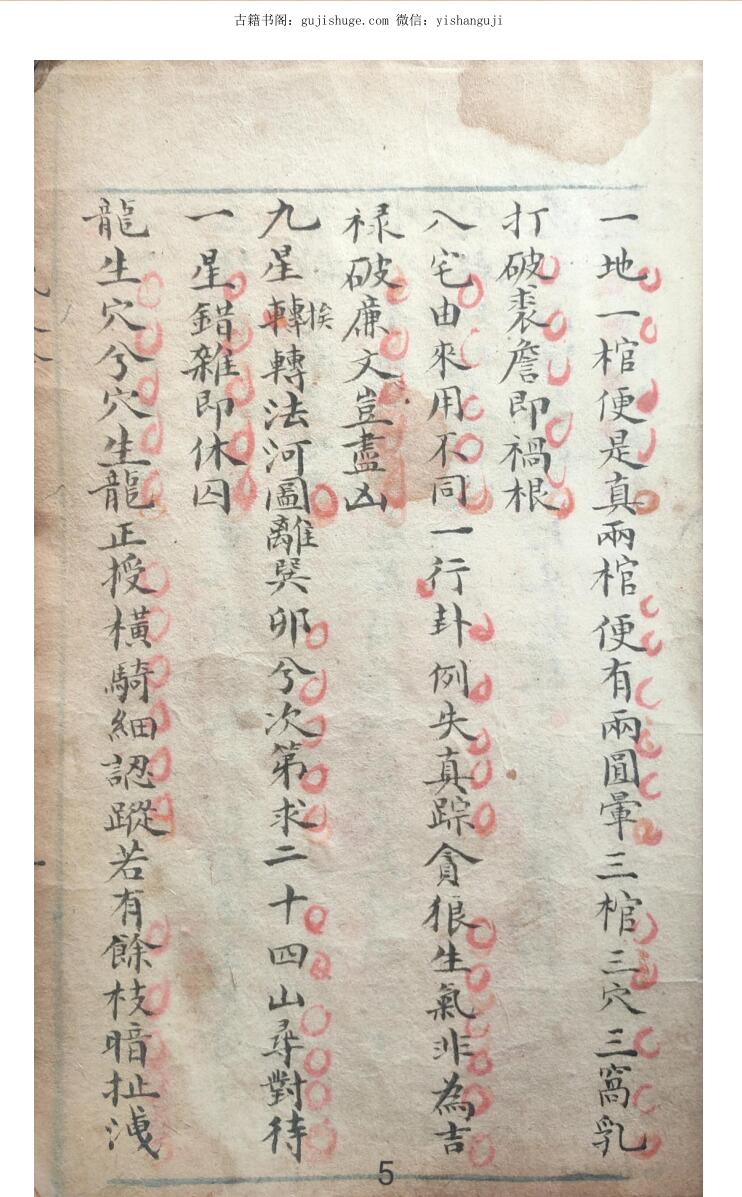 古籍书阁：gujishuge.com 微信：yishanguji
一地一棺便是真兩棺便有兩圓暈三棺三穴三窩乳
打破裘詹即禍根
八宅由來用不同一行卦例失真踪貪狼生氣非為吉
祿破廉文豈盡凶
九星轉挨轉法河圖離巽卯兮次第求二十四山尋對待
一星錯雜即休囚
龍生穴兮穴生龍正授橫騎細認蹤若有餘枝暗扯洩
5